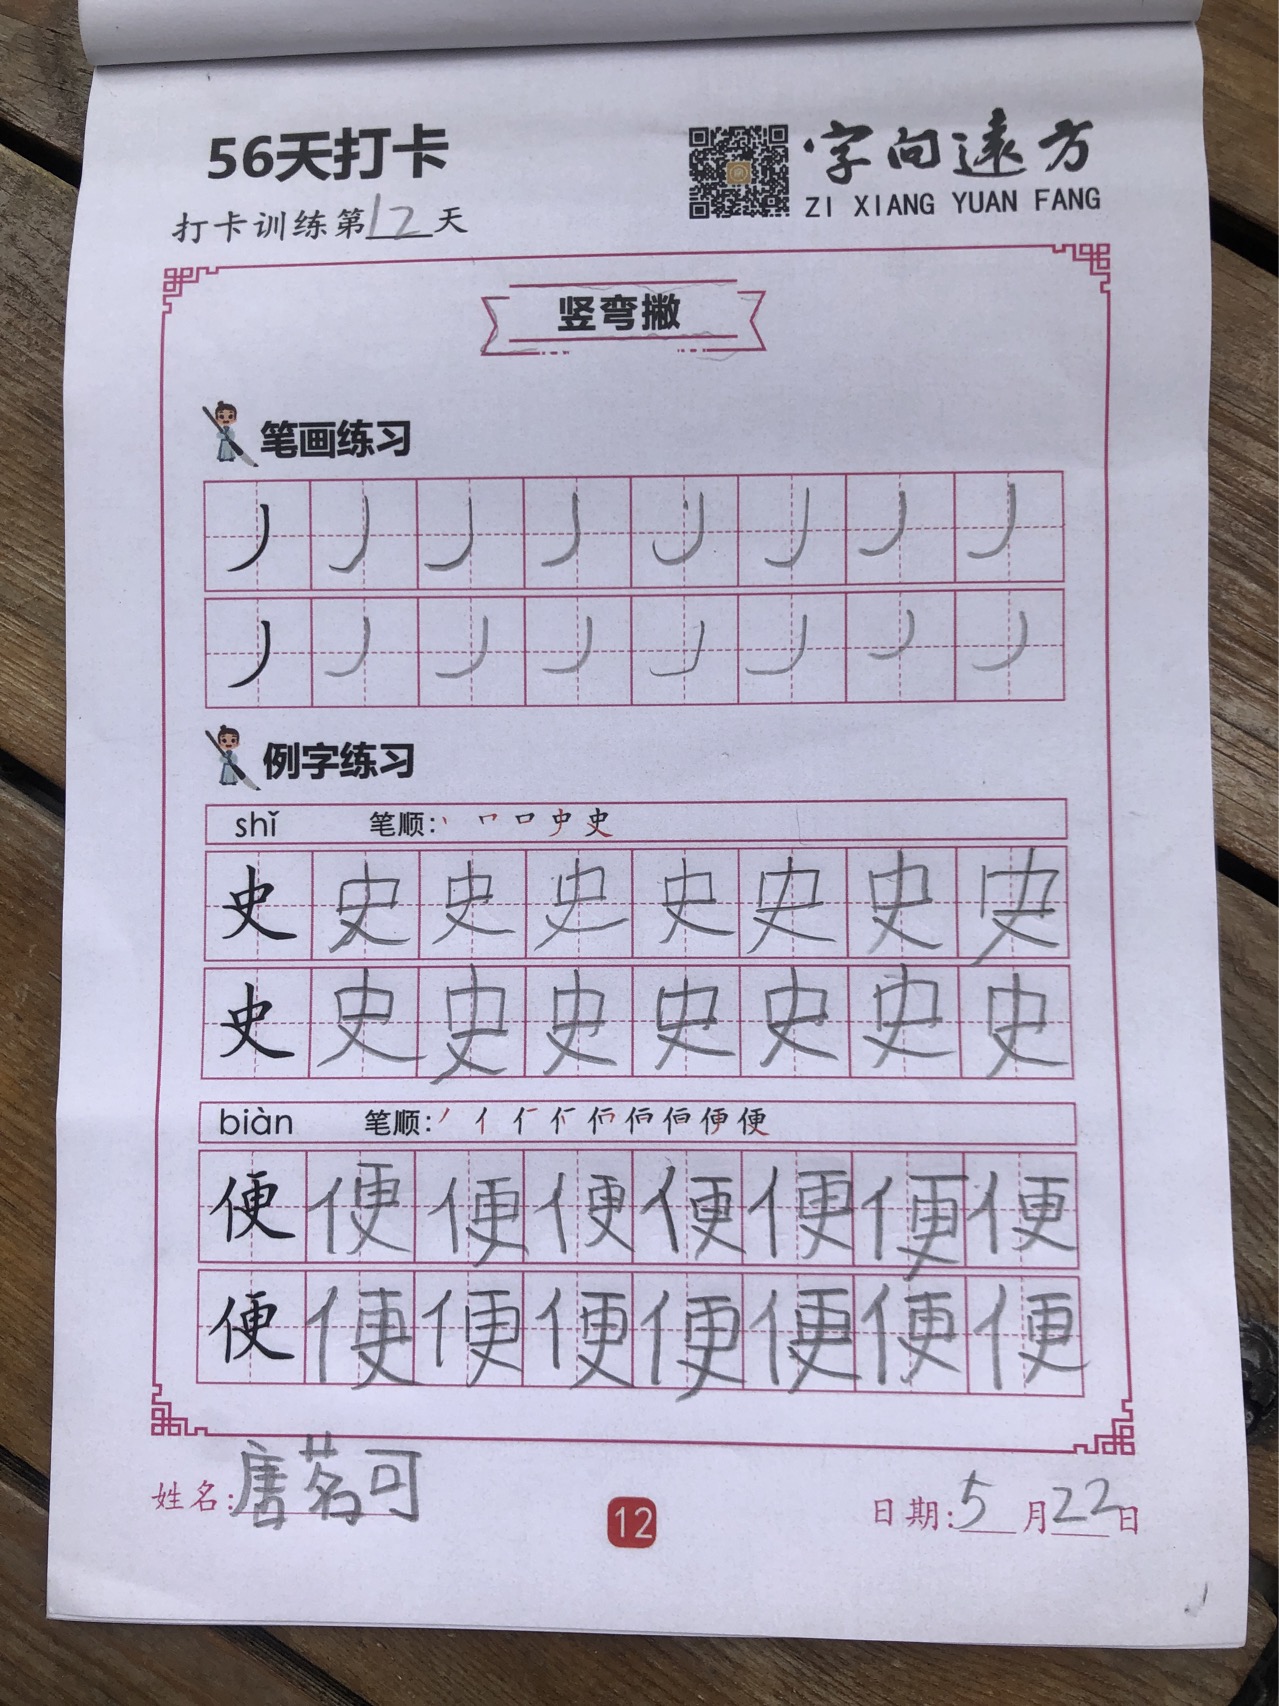 56天打卡
字向远方
ZI XIANG YUAN FANG
打卡训练第12天
竖弯撇
笔画练习
丿 丿 丿 丿 丿 丿 丿 丿
丿 丿 丿 丿 丿 丿 丿 丿
例字练习
shǐ 笔顺: 丨 𠃍 口 史 史
史 史 史 史 史 史 史 史
史 史 史 史 史 史 史 史
biàn 笔顺: 便
便 便 便 便 便 便 便 便
便 便 便 便 便 便 便 便
姓名:唐茗可
12
日期:5月22日